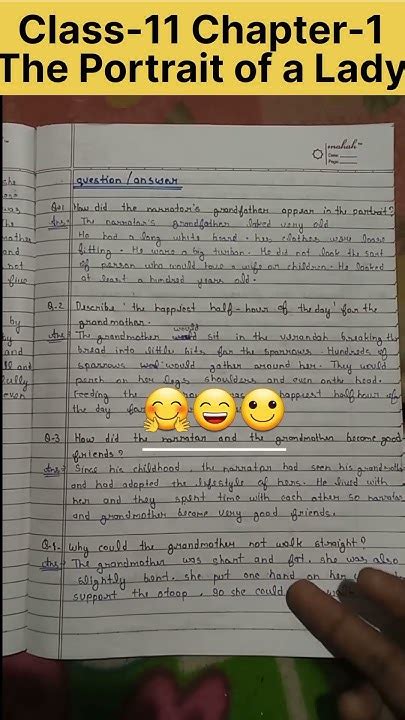 Class-11 Chapter-1
The Portrait of a Lady
Date:
Page:
question / answer
Q-1 How did the narrator's grandfather appear in the portrait?
Ans:- The narrator's grandfather looked very old
He had a long white beard. his clothes were loose
fitting. He wore a big turban. He did not look the sort
of person who would have a wife or children. He looked
at least a hundred years old.
Q-2 Describe 'the happiest half-hour of the day' for the
grandmother.
Ans:- The grandmother would sit in the verandah breaking the
bread into little bits for the sparrows. Hundreds of
sparrows would gather around her. They would
perch on her legs shoulders and even on the head.
Feeding the happiest half hour of
the day for
Q-3 How did the narrator and the grandmother become good
friends?
Ans:- Since his childhood, the narrator had seen his
and had adopted the lifestyle of hers. He lived with
her and they spent time with each other so narrator
and grandmother become very good friends.
Q-4- Why could the grandmother not walk straight?
Ans:- The grandmother was short and fat. she was also
slightly bent. she put one hand on her
support the stoop, so she could